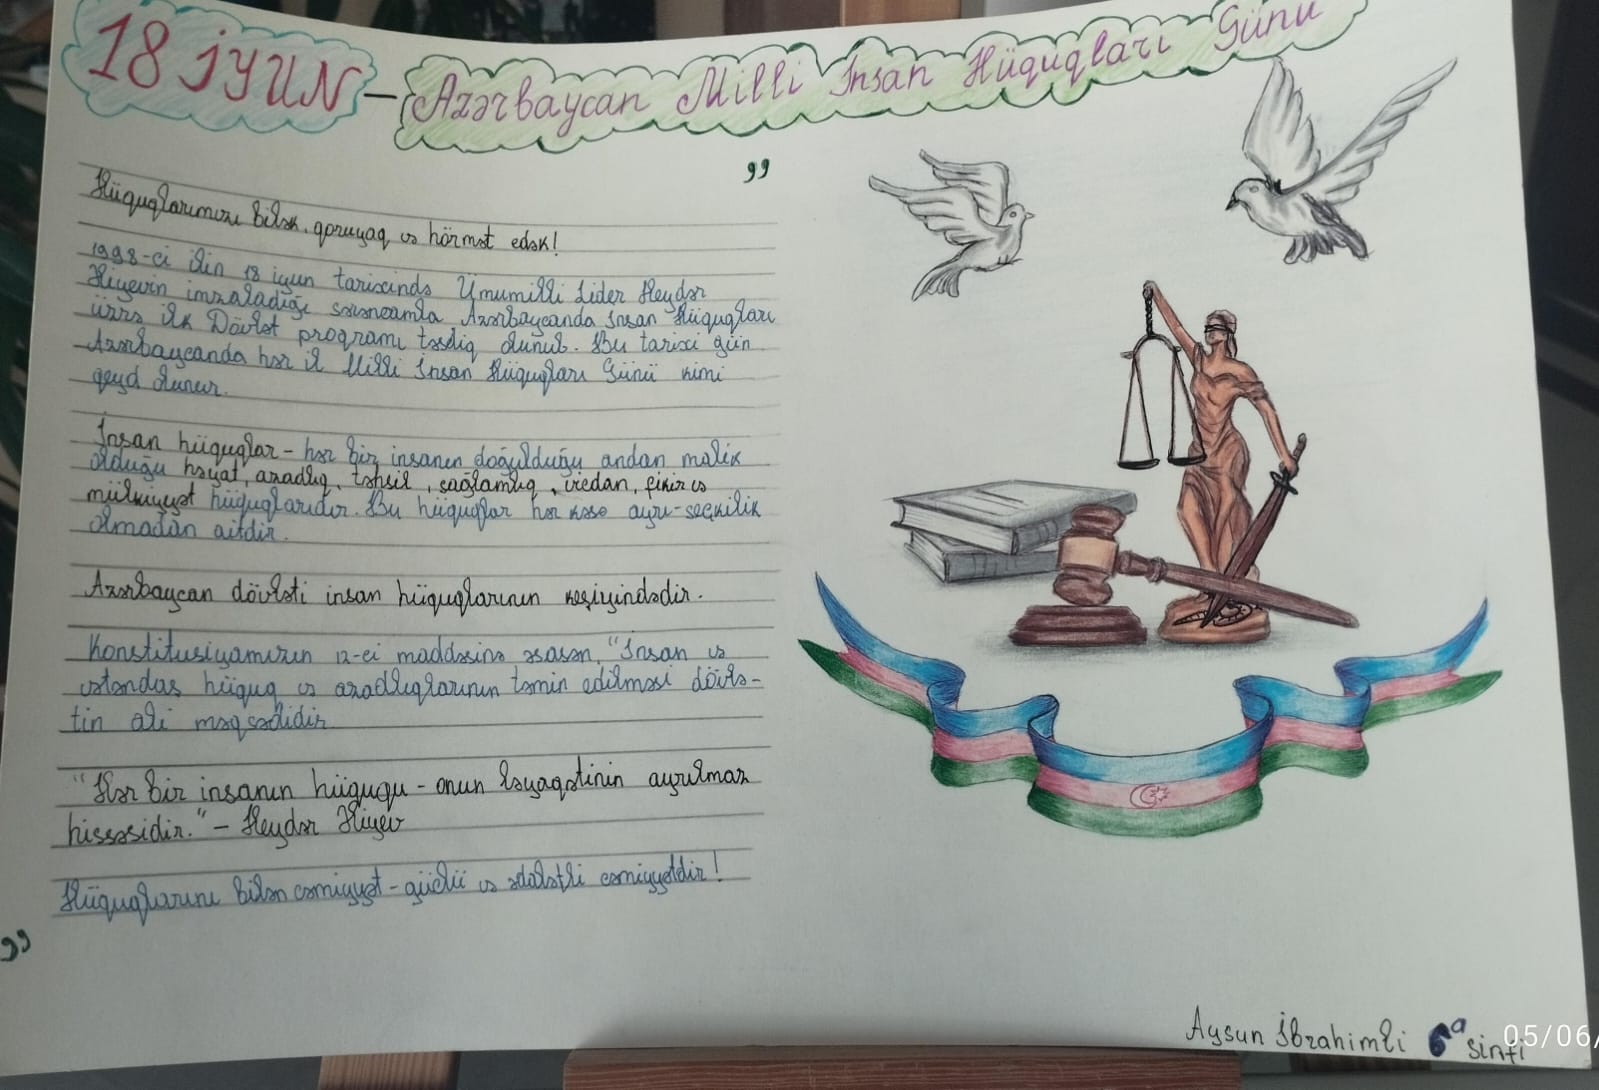 18 İYUN – Azərbaycan Milli İnsan Hüquqları Günü
Hüquqlarımızı bilək, qoruyaq və hörmət edək!
1998-ci ilin 18 iyun tarixində Ümumilli Lider Heydər
Əliyevin imzaladığı sərəncamla Azərbaycanda İnsan Hüquqları
üzrə ilk Dövlət programı təsdiq olunub. Bu tarixi gün
Azərbaycanda hər il Milli İnsan Hüquqları Günü kimi
qeyd olunur.
İnsan hüquqlar – hər bir insanın doğulduğu andan malik
olduğu həyat, azadlıq, təhsil, sağlamlıq, vicdan, fikir və
mülkiyyət hüquqlarıdır. Bu hüquqlar hər kəsə ayrı-seçkilik
olmadan aitdir.
Azərbaycan dövləti insan hüquqlarının keşiyindədir.
Konstitusiyamızın 12-ci maddəsinə əsasən, "İnsan və
vətəndaş hüquq və azadlıqlarının təmin edilməsi dövlə-
tin ali məqsədidir
"Hər bir insanın hüququ – onun ləyaqətinin ayrılmaz
hissəsidir." – Heydər Əliyev
Hüquqlarını bilən cəmiyyət – güclü və ədalətli cəmiyyətdir!
Aysun İbrahimli 6ᵃ sinfi
05/06/